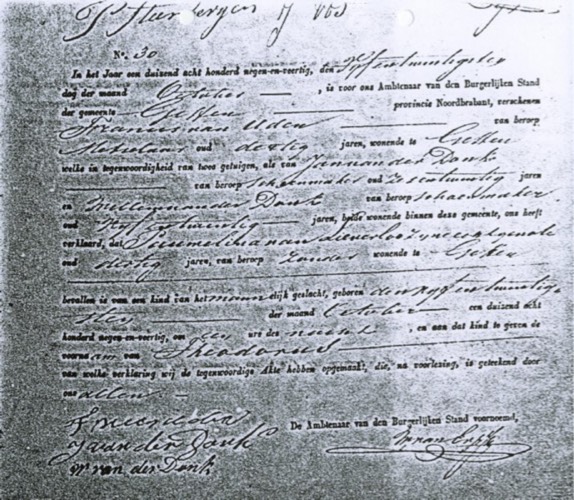 No. 30
In het Jaar een duizend acht honderd negen-en-veertig, den Vijfentwintigsten
dag der maand October, is voor ons Ambtenaar van den Burgerlijken Stand
der gemeente Geffen provincie Noordbrabant, verschenen
Francis van Uden van beroep
oud dertig jaren, wonende te Geffen
welke in tegenwoordigheid van twee getuigen, als van Jan van der Donk
van beroep schoenmaker oud zesentwintig jaren
en Willem van der Donk van beroep schoenmaker
oud vijfentwintig jaren, beide wonende binnen deze gemeente, ons heeft
verklaard, dat van zyne echtgenote
oud dertig jaren, van beroep zonder wonende te Geffen
bevallen is van een kind van het mannelijk geslacht, geboren den vijfentwintig-
sten der maand October een duizend acht
honderd negen-en-veertig, om een ure des, en aan dat kind te geven de
voornaam van Theodorus
van welke verklaring wij de tegenwoordige Akte hebben opgemaakt, die, na voorlezing, is geteekend door
ons allen
De Ambtenaar van den Burgerlijken Stand voornoemd,
F van uden
J van der Donk
W van der Donk